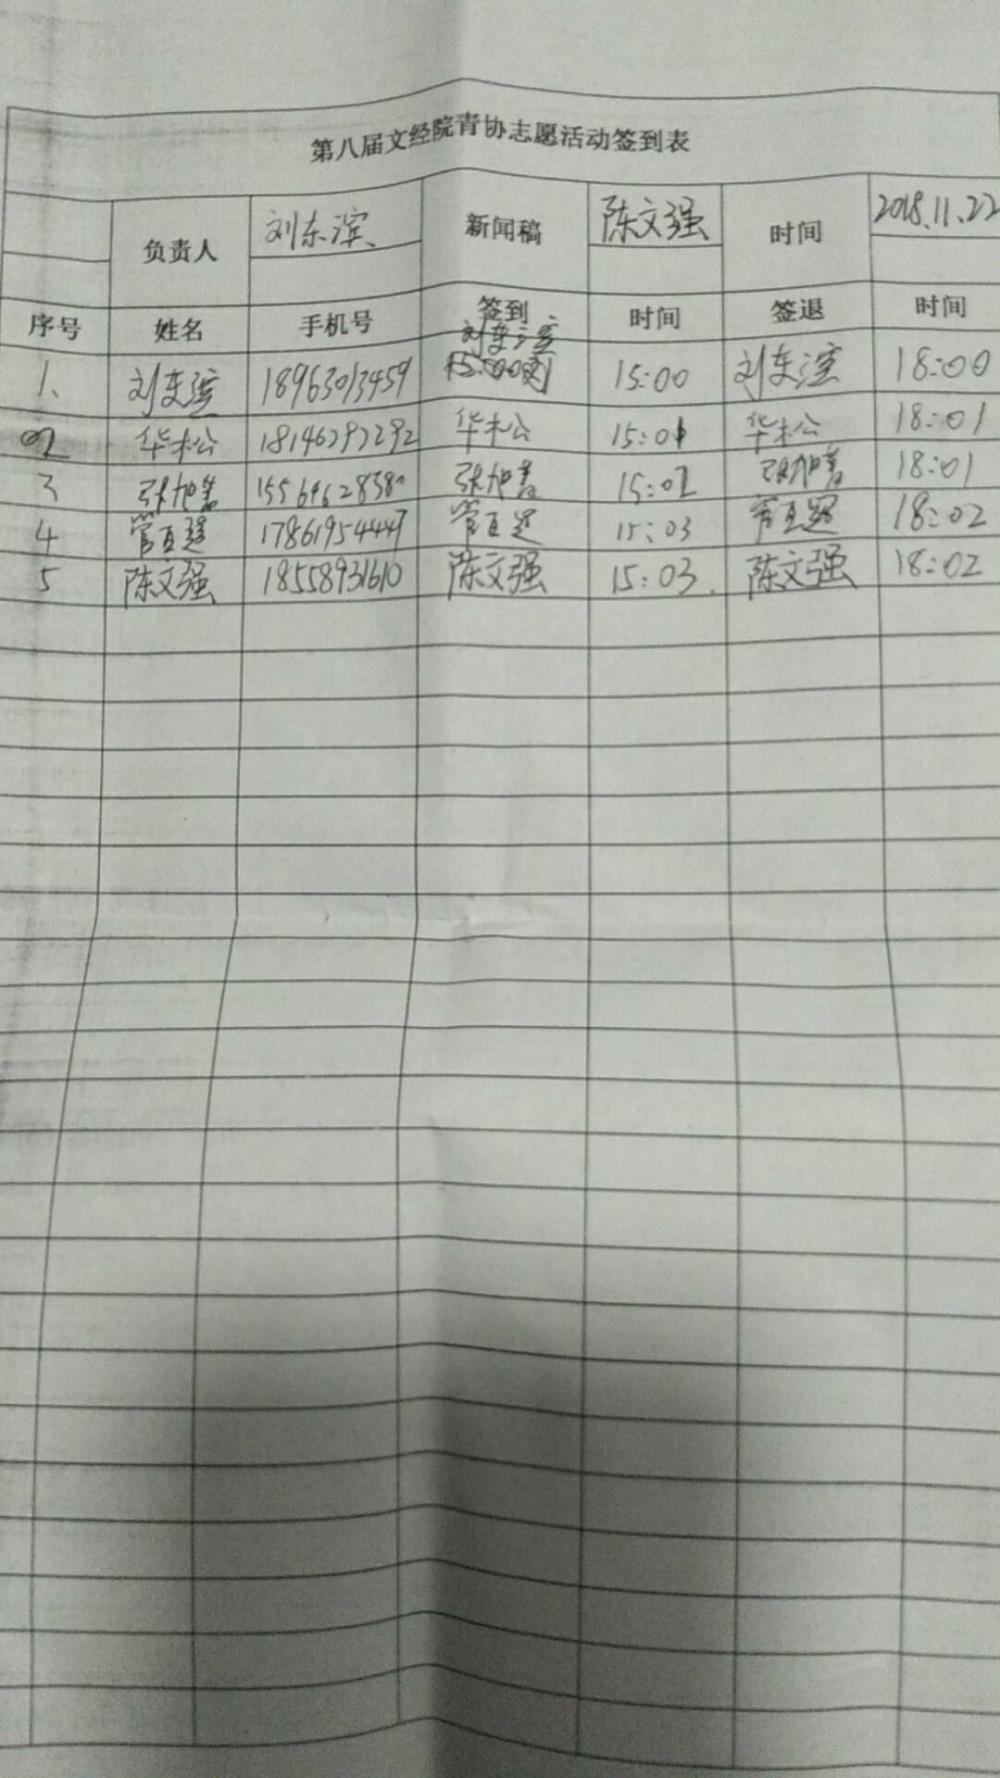 第八届文经院青协志愿活动签到表
负责人 刘东滨 新闻稿 陈文强 时间 2018.11.22
序号 姓名 手机号 签到 时间 签退 时间
1、 刘东滨 18963013459 刘东滨 15:00 刘东滨 18:00
2 华松 18146292292 华松 15:01 华松 18:01
3 张旭 15564628380 张旭 15:02 张旭 18:01
4 管 17861954447 管 15:03 管 18:02
5 陈文强 18558931610 陈文强 15:03 陈文强 18:02